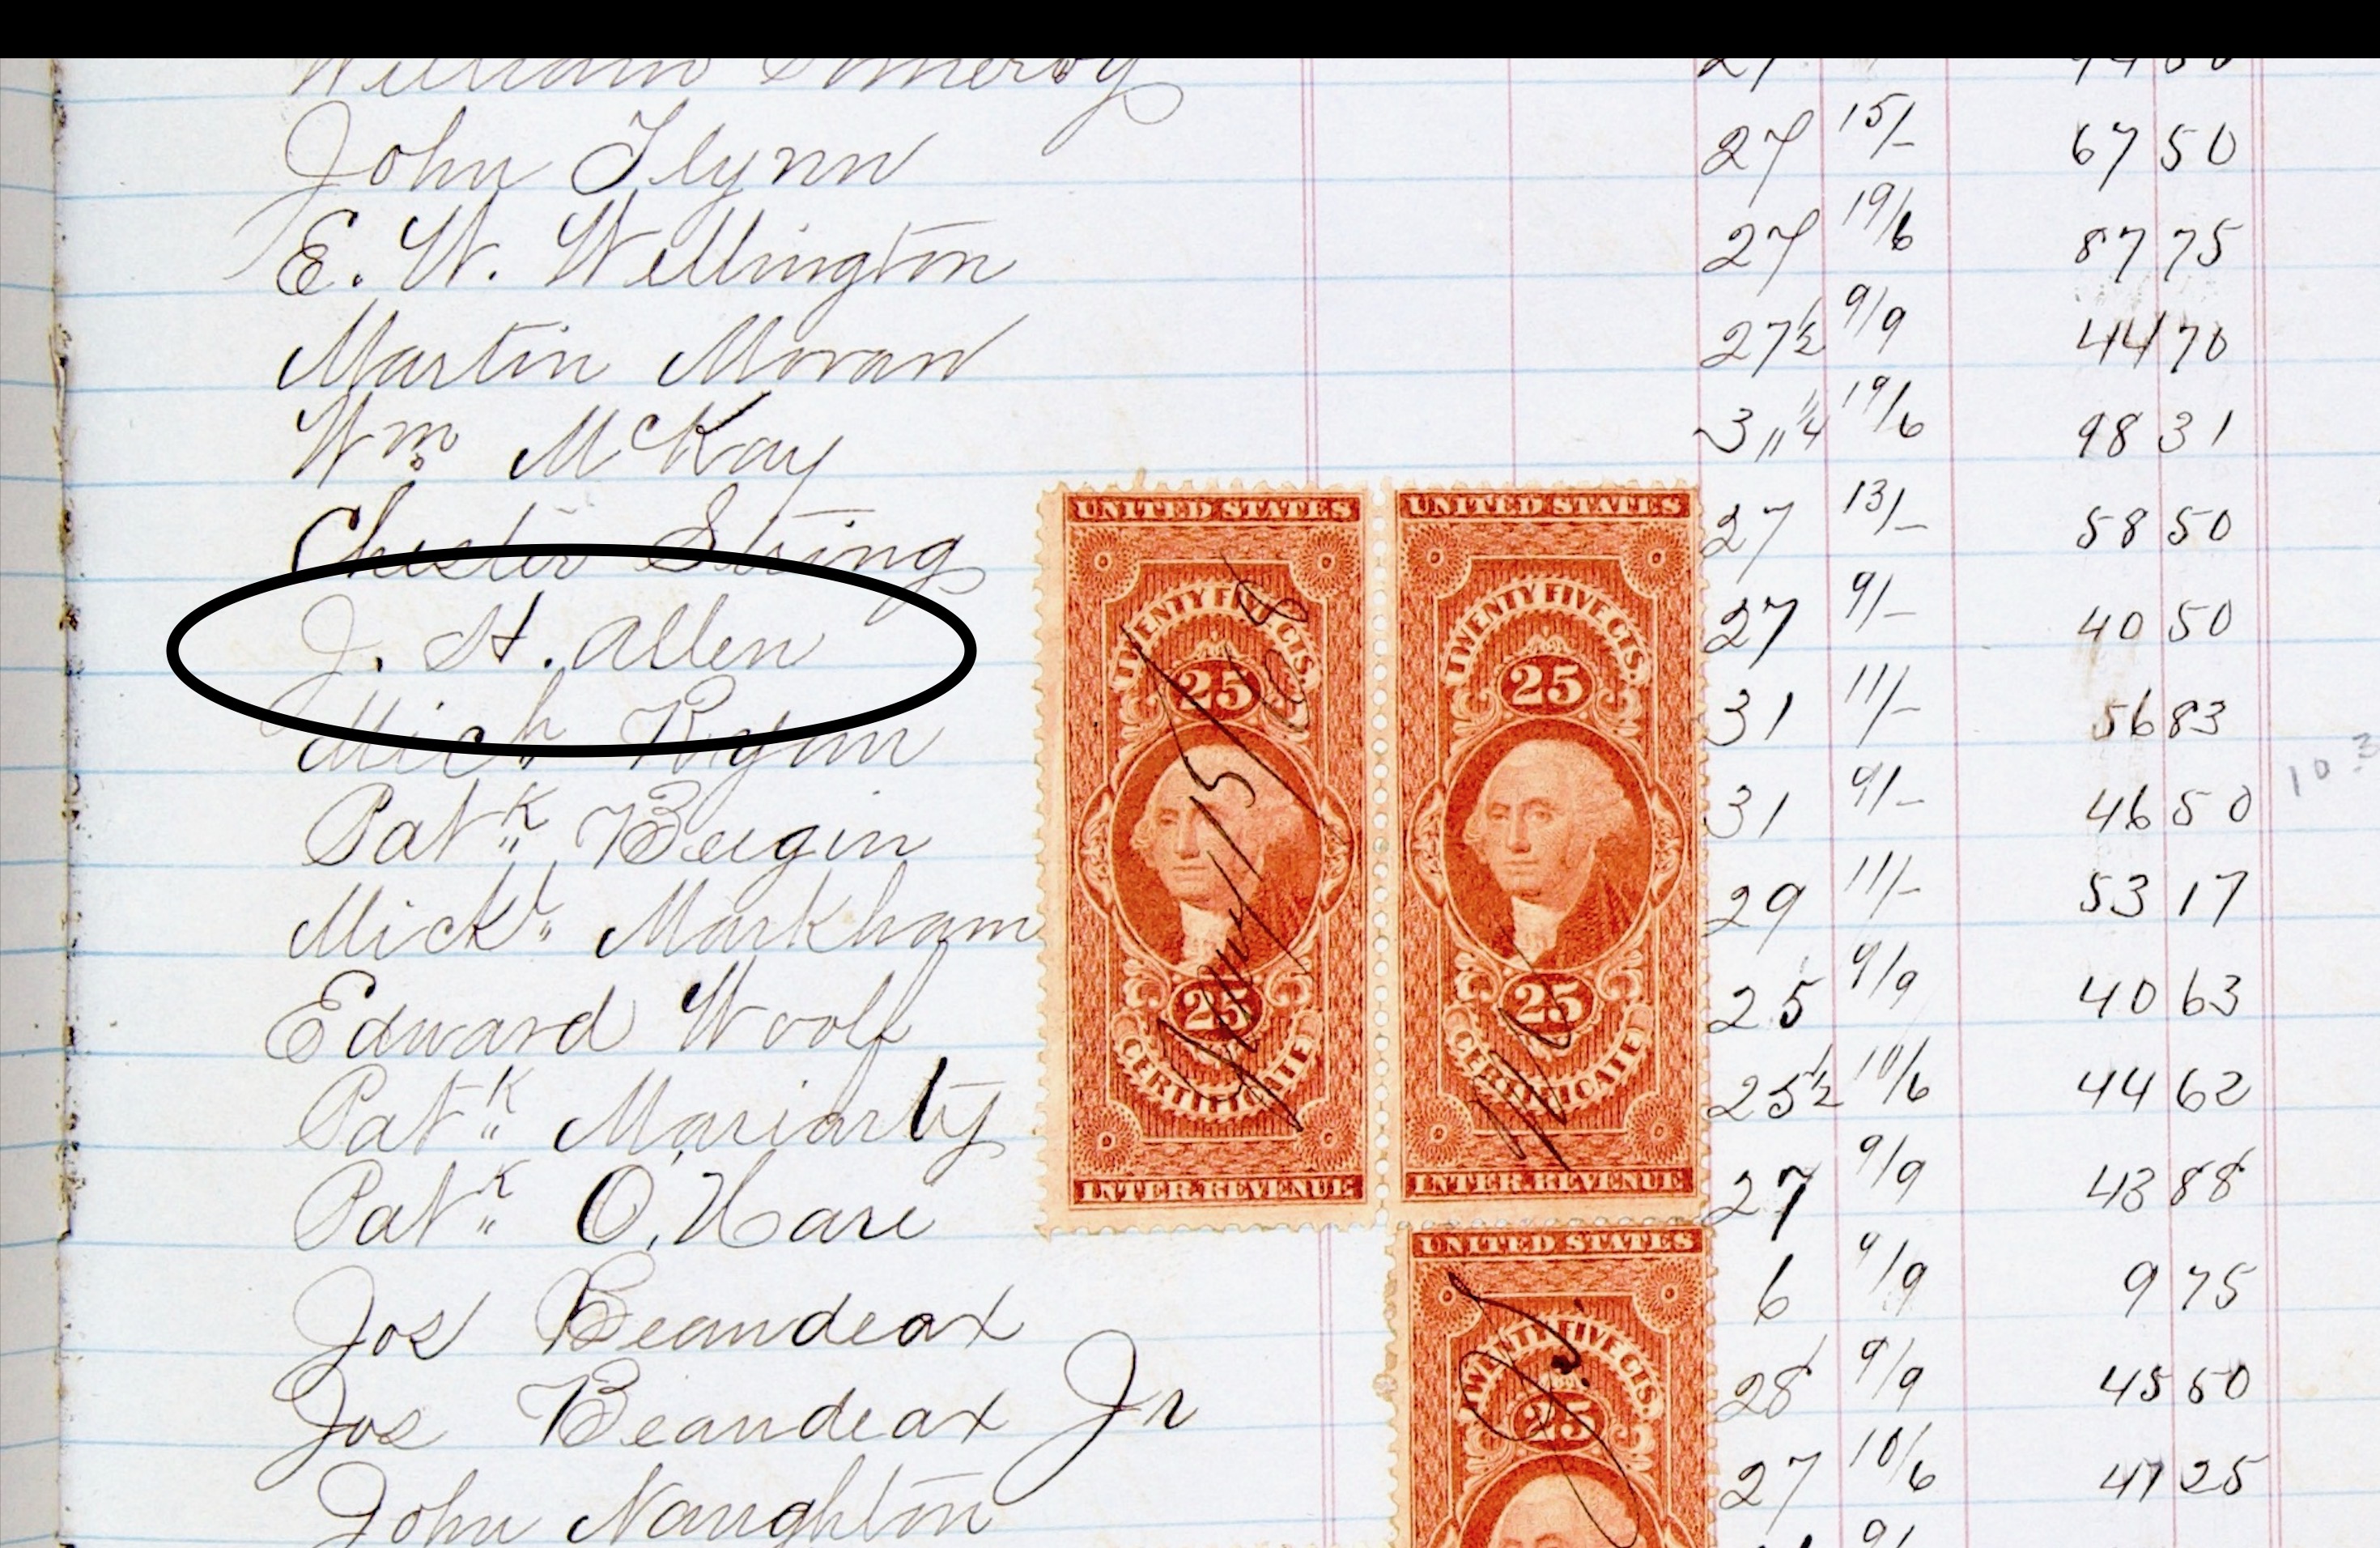 William Pomeroy 27 94 50
John Flynn 27 15/- 67 50
E. W. Wellington 27 19/6 87 75
Martin Moran 27½ 9/9 44 70
Wm McKay 19/6 98 31
Chester String 27 13/- 58 50
J. H. Allen 27 9/- 40 50
Mich Ryan 31 11/- 56 83
Patk Bergin 31 9/- 46 50
Michl Markham 29 11/- 53 17
Edward Woolf 25 9/9 40 63
Patk Moriarty 25½ 10/6 44 62
Patk O'Hare 27 9/9 43 88
Jos Beaudeax 6 9/9 9 75
Jos Beaudeax Jr 28 9/9 45 50
John Naughton 27 10/6 47 25
103
UNITED STATES
TWENTY FIVE CTS.
25
25
CERTIFICATE
INTER. REVENUE
15/68
UNITED STATES
TWENTY FIVE CTS.
25
25
CERTIFICATE
INTER. REVENUE
UNITED STATES
TWENTY FIVE CTS.
25